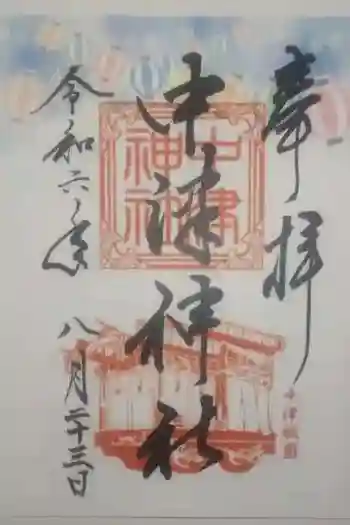 奉拝
中津神社
中津神社
令和六年
八月二十三日